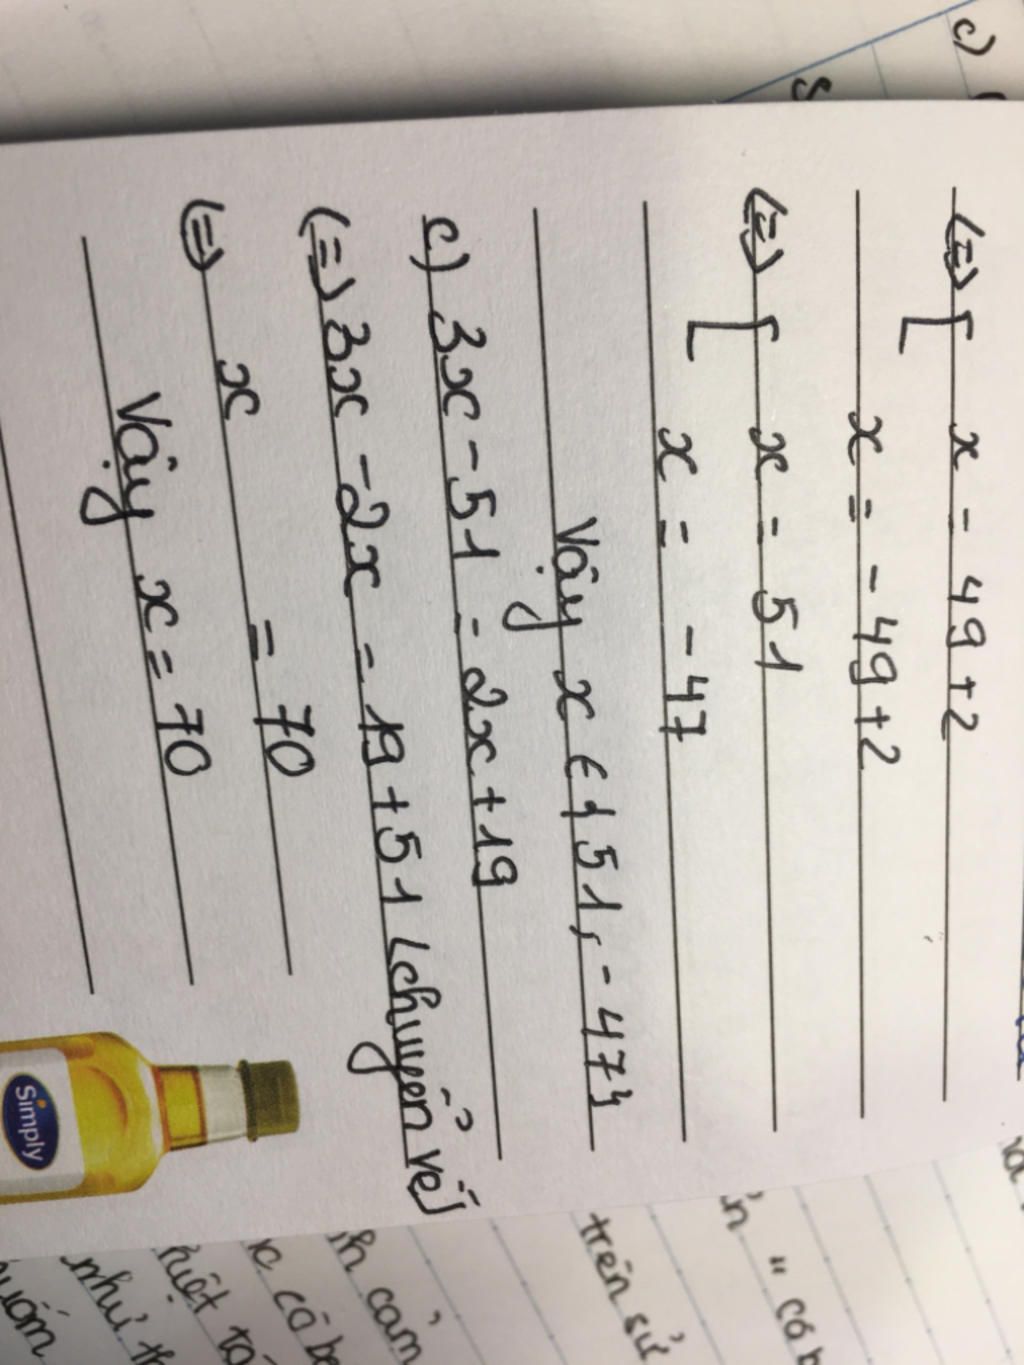 c)
(=) [ x = 49+2
x = -49+2
(=) [ x = 51
x = -47
Vậy x ∈ {51, -47}
c) 3x - 51 = 2x + 19
(=) 3x - 2x = 19 + 51 (chuyển vế)
(=) x = 70
Vậy x = 70
Simply
" có
trên sử
cảm
nhiệt
như